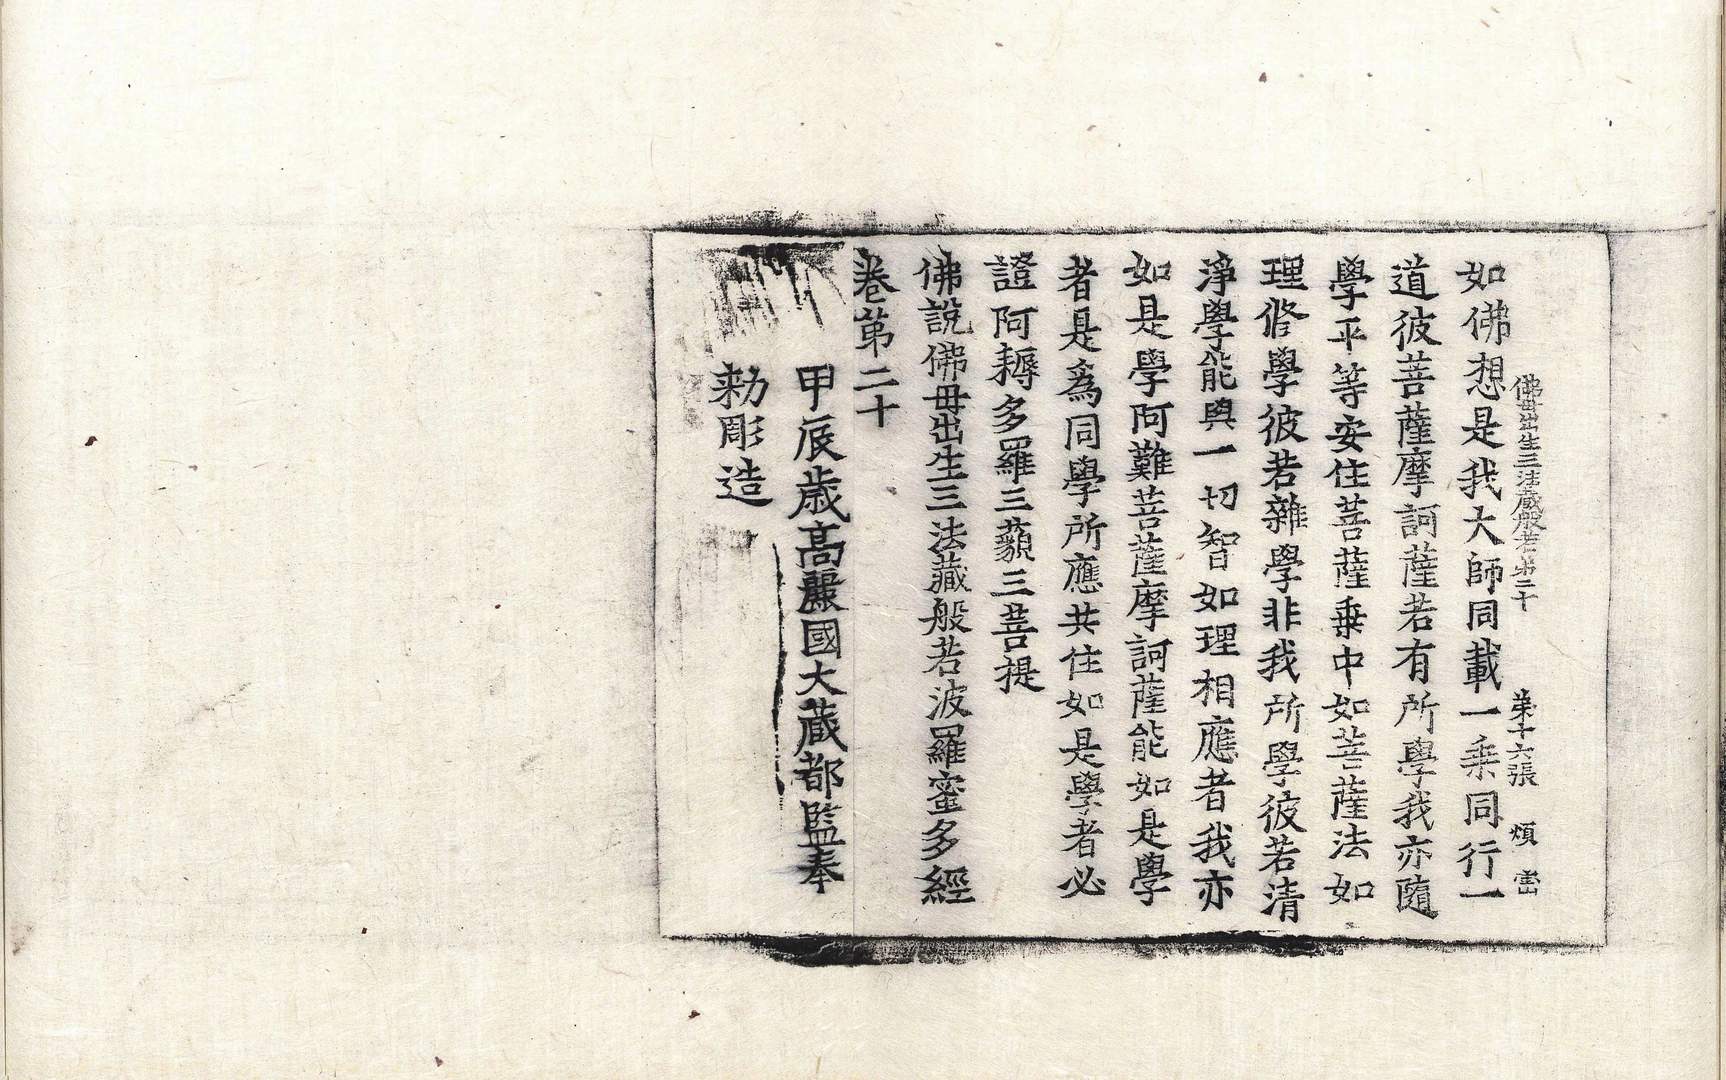 佛母出生三法藏般若第二十 第十六張 煩
如佛想是我大師同載一乗同行一
道彼菩薩摩訶薩若有所學我亦隨
學平等安住菩薩乗中如菩薩法如
理修學彼若雜學非我所學彼若清
淨學能與一切智如理相應者我亦
如是學阿難菩薩摩訶薩能如是學
者是爲同學所應共住如是學者必
證阿耨多羅三藐三菩提
佛說佛母出生三法藏般若波羅蜜多經
卷第二十
甲辰歲高麗國大藏都監奉
勅彫造